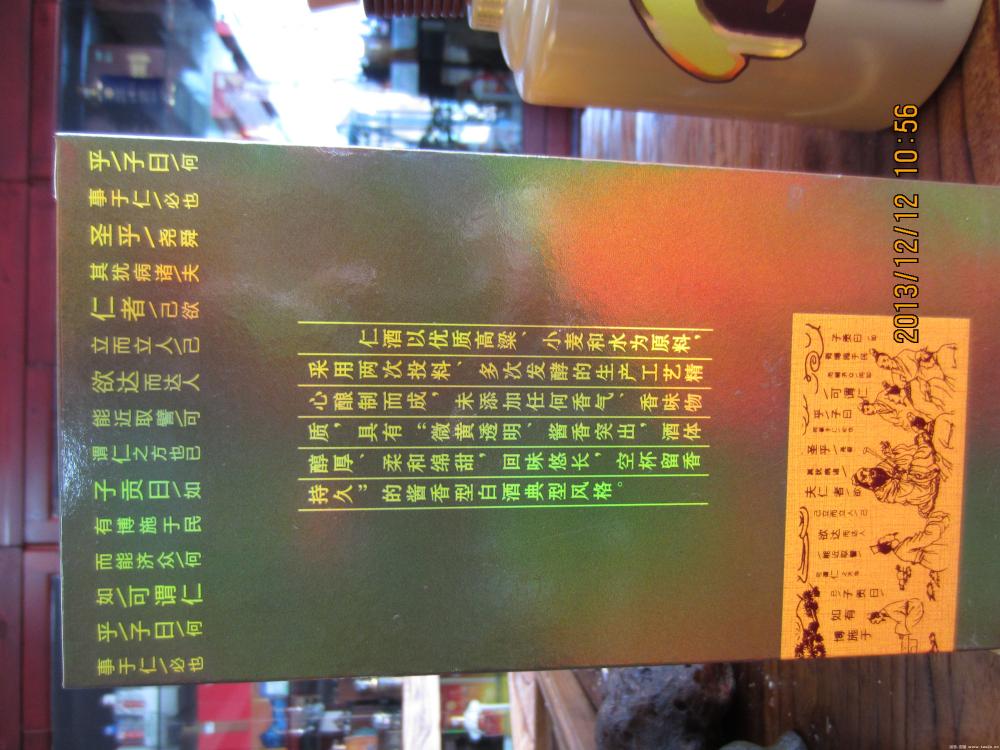 乎/子曰/何
事于仁/必也
圣乎/尧舜
其犹病诸/夫
仁者/己欲
立而立人/己
欲达而达人
能近取譬/可
谓仁之方也已
子贡曰/如
有博施于民
而能济众/何
如/可谓仁
乎/子曰/何
事于仁/必也
仁酒以优质高粱、小麦和水为原料，
采用两次投料、多次发酵的生产工艺精
心酿制而成，未添加任何香气、香味物
质，具有“微黄透明、酱香突出，酒体
醇厚、柔和绵甜，回味悠长，空杯留香
持久”的酱香型白酒典型风格。
子贡曰/如
有博施于民
/可谓仁
乎/子曰
圣乎/尧舜
其犹病诸/
夫仁者/欲
己立而立人/己
欲达而达人
/能近取譬/
子贡曰/
如有
博施于
2013/12/12 10:56